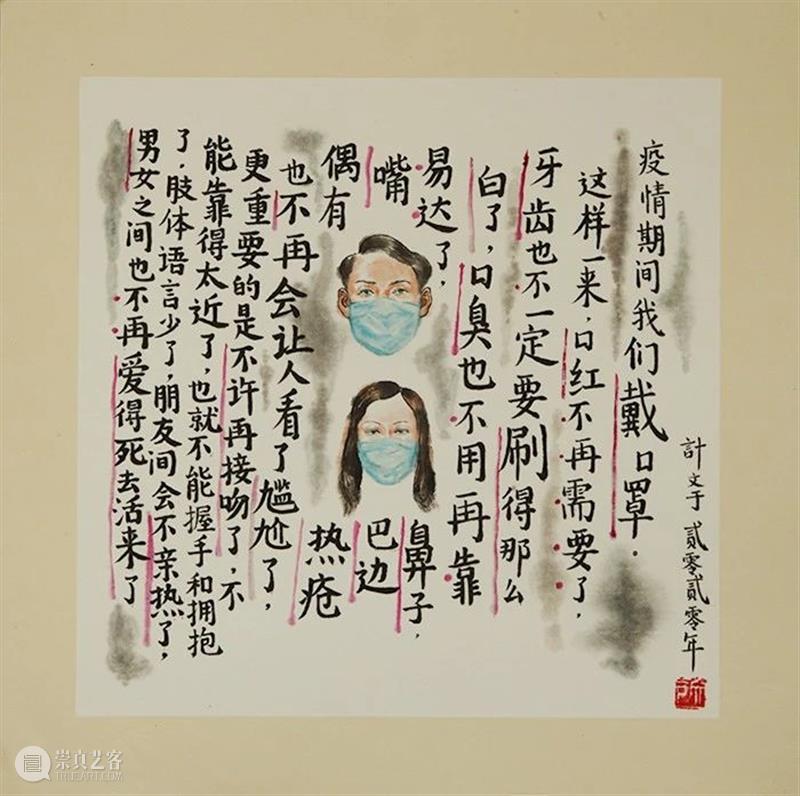 疫情期间我们戴口罩.
这样一来,口红不再需要了,
牙齿也不一定要刷得那么
白了,口臭也不用再靠
易达了,鼻子,
嘴巴边
偶有热疮
也不再会让人看了尴尬了,
更重要的是不许再接吻了,不
能靠得太近了,也就不能握手和拥抱
了,肢体语言少了,朋友间会不亲热了,
男女之间也不再爱得死去活来了
計文于 貳零貳零年
崇真艺客
TRUEART.COM